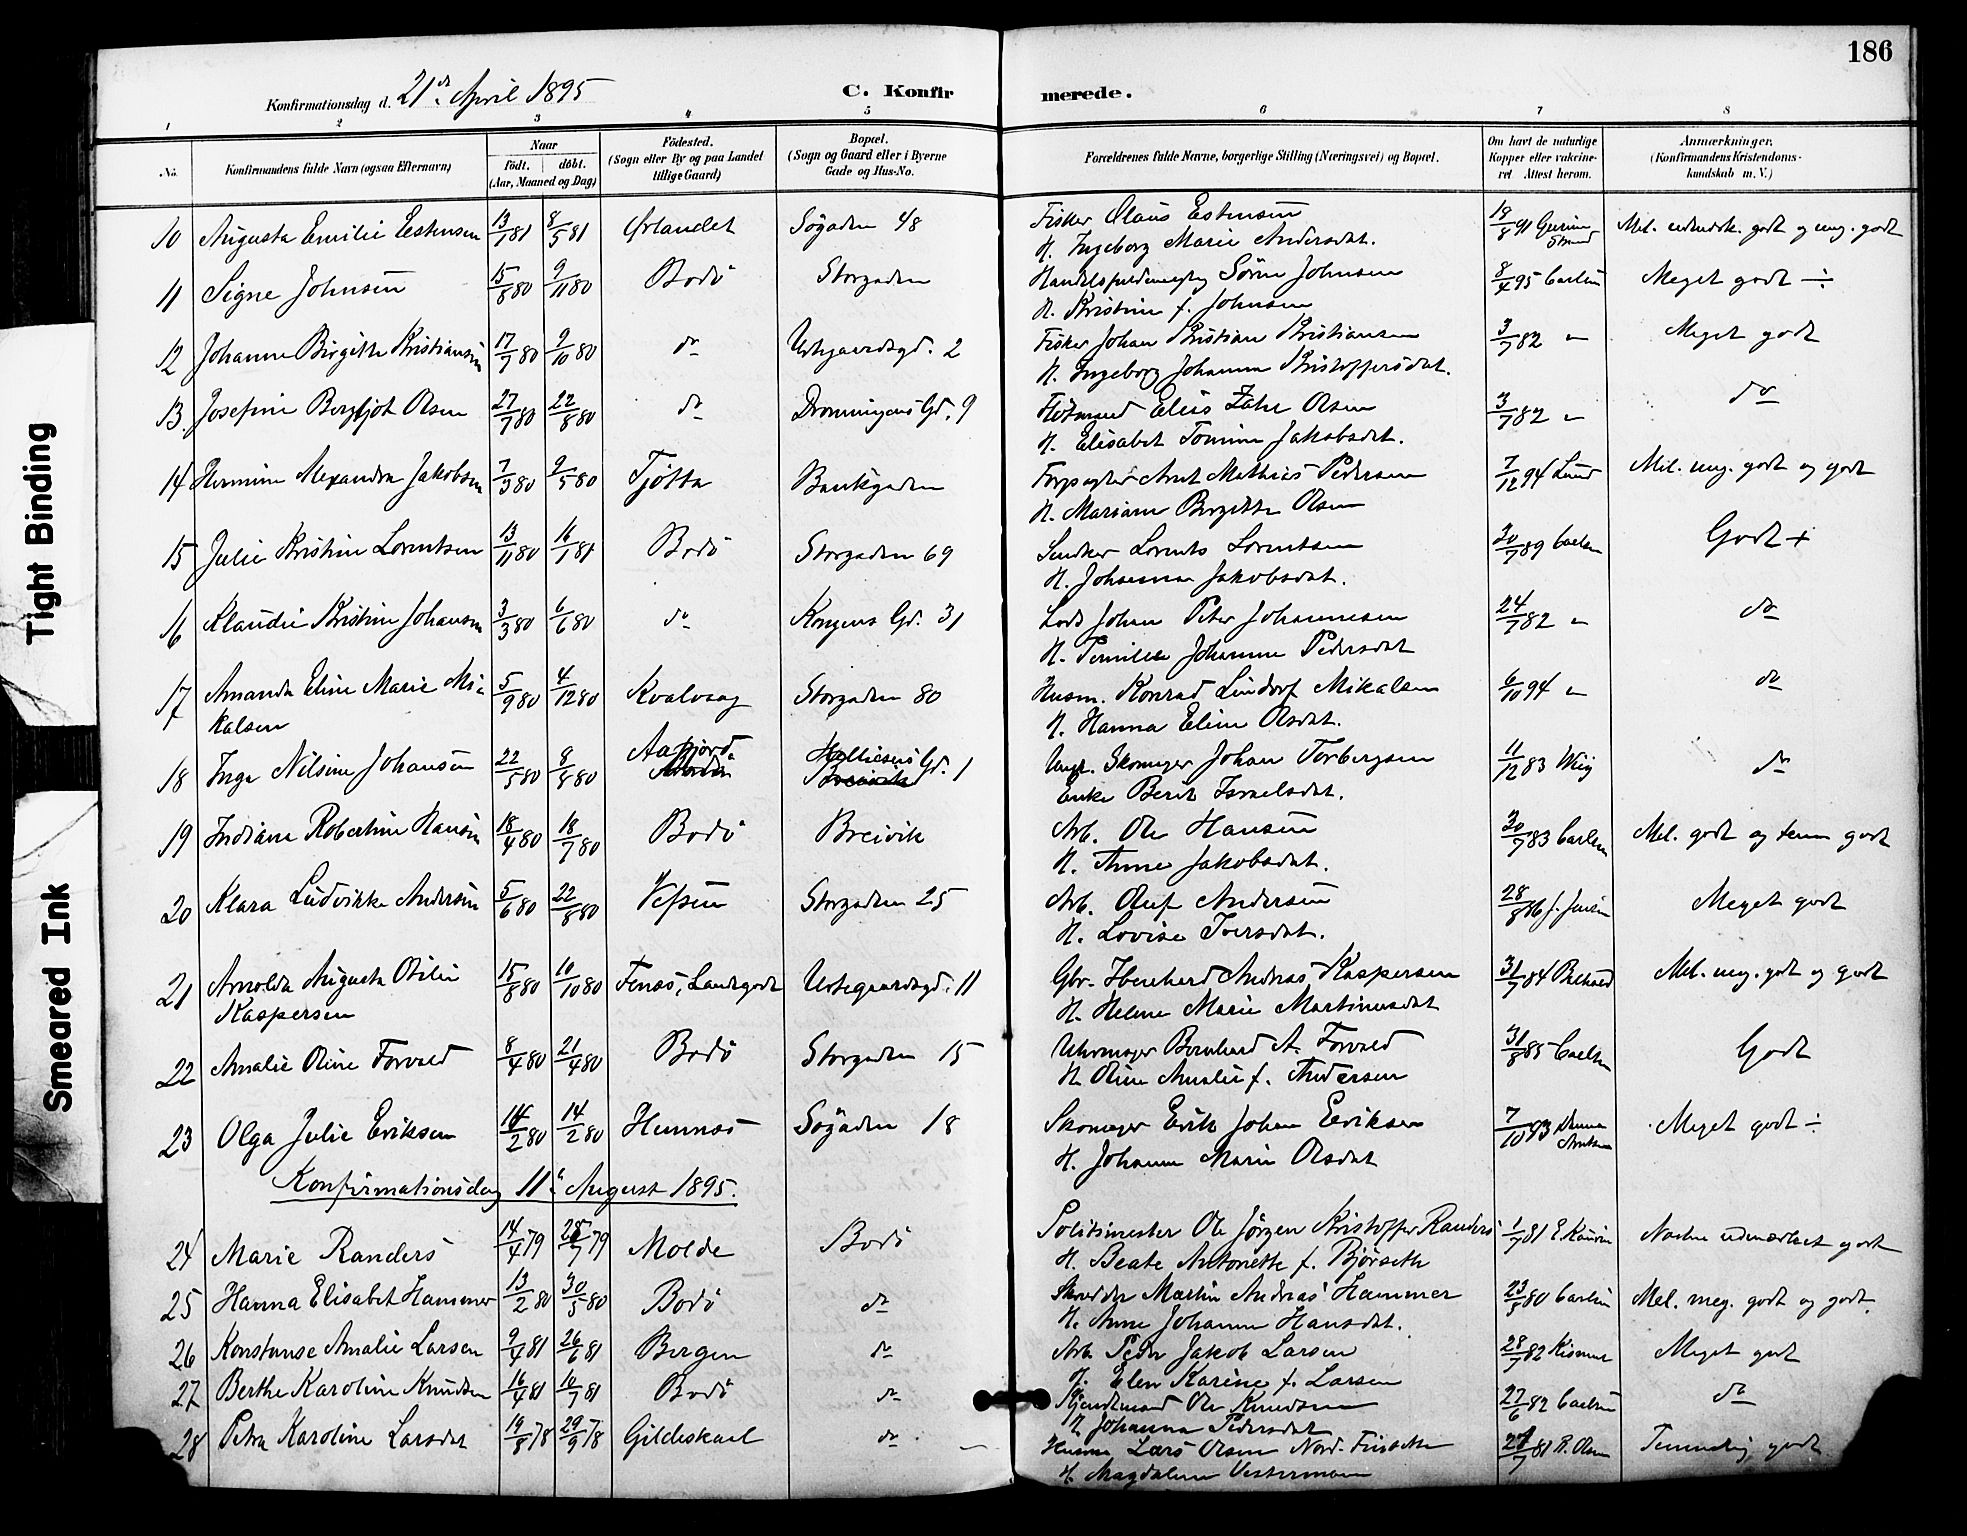 186
Konfirmationsdag d. 21de April 1895
C. Konfirmerede.
1 2 3 4 5 6 7 8
No. Konfirmandens fulde Navn (ogsaa Efternavn) Naar født. døbt. (Aar, Maaned og Dag) Fødested. (Sogn eller By og paa Landet tillige Gaard) Bopæl. (Sogn og Gaard eller i Byerne Gade og Hus-No. Forældrenes fulde Navne, borgerlige Stilling (Næringsvei) og Bopæl. Om havt de naturlige Kopper eller vaccineret Attest herom. Anmærkninger. (Konfirmandens Kristendomskundskab m. V.)
10 Augusta Emilie Estensen 13/1 81 8/5 81 Ørlandet Søgaden 48 Fisker Olaus Estensen 19/8 91 Mel. udmærk. godt og meg. godt
H. Ingeborg Marie Andersdat.
11 Signe Johnsen 15/8 80 9/11 80 Bodø Storgaden Søren Johnsen 8/4 95 Carlsen Meget godt ÷
H. Kristine f. Johnsen
12 Johanne Birgitte Kristiansen 17/7 80 9/10 80 do Urtegaardsgd. 2 Fisker Johan Kristian Kristiansen 3/7 82 " Meget godt
H. Ingeborg Johanna Kristoffersdat.
13. Josefine Bergljot Olsen 27/7 80 22/8 80 do Dronningens Gd. 9 Elias Zahl Olsen 3/7 82 " do
H. Elisabet Tomine Jakobsdat.
14 Hermine Alexandra Jakobsen 7/3 80 9/5 80 Tjøtta Bankgaden Forpagter Arnt Mathias Pedersen 7/12 94 Lund Mel. meg. godt og godt
H. Mariane Bergitte Olsen
15 Julie Kristine Lorentsen 13/11 80 16/1 81 Bodø Storgaden 69 Snedker Lorents Lorentsen 30/7 89 Carlsen Godt +
H. Johanna Jakobsdat.
16 Klaudie Kristine Johansen 3/3 80 6/6 80 do Kongens Gd. 31 Lods Johan Peter Johannesen 24/7 82 " do
H. Pernille Johanne Pedersdat
17 Amanda Eline Marie Mi- 5/9 80 4/12 80 Kvalvaag Storgaden 80 Husm. Konrad Lindorf Mikalsen 6/10 94 " do
kalsen H. Hanna Eline Olsdat.
18 Inga Nilsine Johansen 22/5 80 8/8 80 Aafjord Gd. 1 Ungk. Skomager Johan Torbergsen 11/12 83 Wiig do
Enke Berit Israelsdat.
19 Indiana Robertine Hansen 18/4 80 18/7 80 Bodø Breivik Arb. Ole Hansen 30/7 83 Carlsen Mel. godt og tem. godt
H. Anne Jakobsdat.
20 Klara Ludvikke Andersen 5/6 80 22/8 80 Vefsen Storgaden 25 Arb. Oluf Andersen 28/8 86 J. Jensen Meget godt
H. Lovise Iversdat.
21 Arnolda Augusta Otilie 15/8 80 10/10 80 Fenes, Landegode Urtegaardsgd. 11 Gbr. Eberhard Andreas Kaspersen 31/7 84 Mel. meg. godt og godt
Kaspersen H. Helene Marie Martinusdat
22 Amalie Oline Forvald 8/4 80 21/4 80 Bodø Storgaden 15 Uhrmager Bernhard A. Forvald 31/8 85 Carlsen Godt
H. Oline Amalie f. Andersen
23 Olga Julie Eriksen 14/2 80 14/2 80 Hemnæs Søgaden 18 Skomager Erik Johan Eriksen 7/10 93 Meget godt ÷
H. Johanna Marie Olsdat
Konfirmationsdag 11te August 1895.
24 Marie Randers 14/4 79 /7 79 Molde Bodø Politimester Ole Jörgen Kristoffer Randers 1/7 81 Næsten udmærket godt
H. Beate Antonette f. Bjørseth
25 Hanna Elisabet Hammer 13/2 80 30/5 80 Bodø do Skrædder Martin Andreas Hammer 80 Carlsen Mel. meg. godt og godt.
H. Anne Johanne Hansdat.
26 Konstanse Amalie Larsen 9/4 81 26/6 81 Bergen do Arb. Peder Jakob Larsen 28/7 82 Meget godt
H. Elen Karine f. Larsen
27 Berthe Karoline Knudsen 16/4 81 10/7 81 Bodø do Ole Knudsen 27/6 82 Carlsen do
H. Johanna Pedersdat
28 Petra Karoline Larsdat 19/8 78 29/9 78 Gildeskaal do Husm. Lars Olsen Nord-Finseth 81 R. Olsen Temmelig godt
H. Magdalena Vestermann
Tight Binding
Smeared Ink